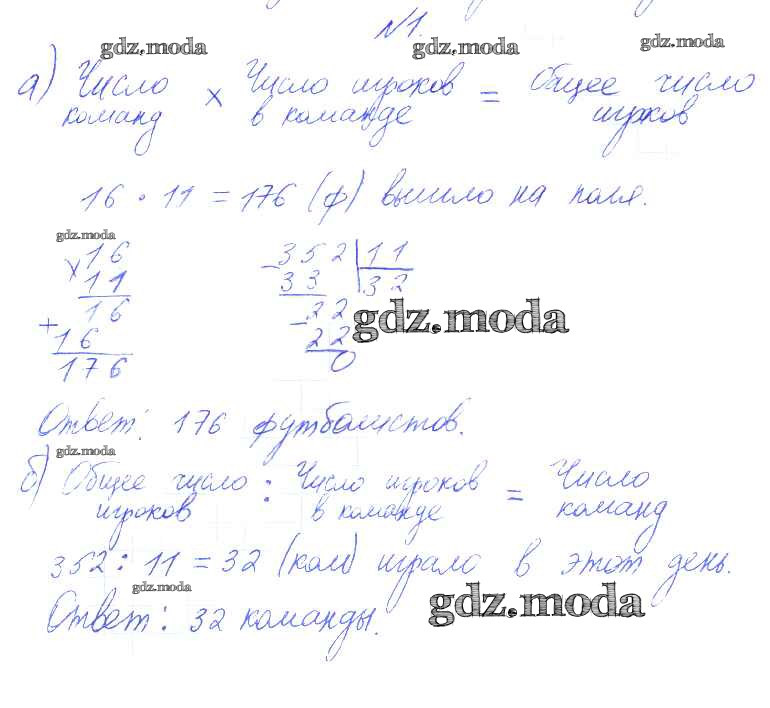 №1.
gdz.moda gdz.moda gdz.moda
а) Число × Число игроков = Общее число
команд в команде игроков
16 · 11 = 176 (ф) вышло на поля.
gdz.moda
× 16 - 352 | 11
11 33 32
16 - 22
+ 16 22 gdz.moda
176 0
Ответ: 176 футболистов.
gdz.moda
б) Общее число : Число игроков = Число
игроков в команде команд
352 : 11 = 32 (ком) играло в этот день.
gdz.moda
Ответ: 32 команды.
gdz.moda